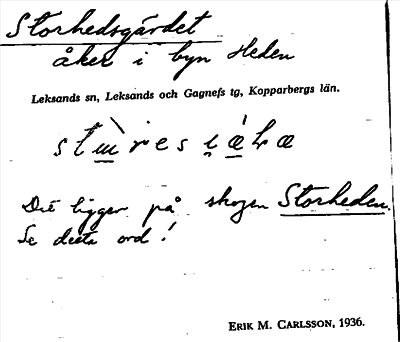 Storhedsgärdet
åker i byn Heden
Leksands sn, Leksands och Gagnefs tg, Kopparbergs län.
Det ligger på skogen Storheden.
Se detta ord!
ERIK M. CARLSSON, 1936.